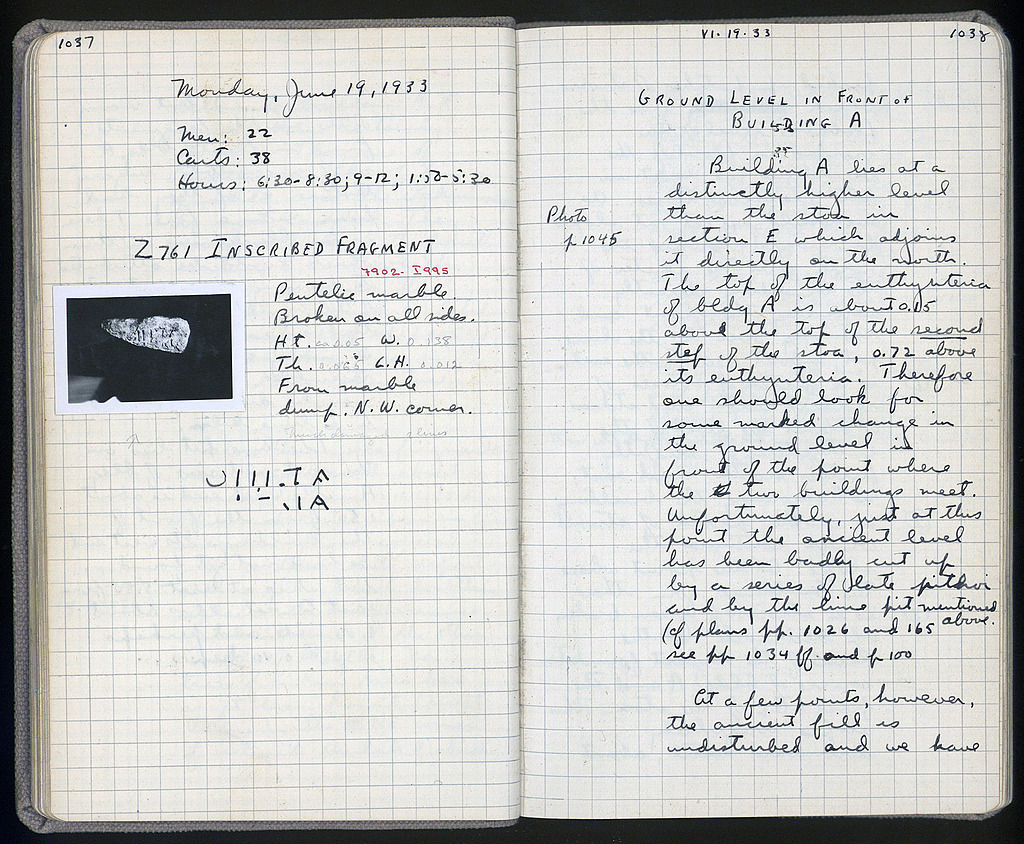 1037
Monday, June 19, 1933
Men: 22
Carts: 38
Hours: 6:30-8:30; 9-12; 1:30-5:30
Z 761 INSCRIBED FRAGMENT
7902- I 995
Pentelic marble
Broken on all sides.
Ht. W. 0.138
Th. L.H. 0.012
From marble
dump. N.W. corner.
VI·19·33
1038
GROUND LEVEL IN FRONT OF
BUILDING A
Building A lies at a
distinctly higher level
than the stoa in
section E which adjoins
it directly on the north.
The top of the euthynteria
of bldg A is about 0.15
above the top of the second
step of the stoa, 0.72 above
its euthynteria. Therefore
one should look for
some marked change in
the ground level in
front of the point where
the two buildings meet.
Unfortunately, just at this
point the ancient level
has been badly cut up
by a series of late pithoi
and by the lime pit mentioned
above.
(cf plans pp. 1026 and 165
see pp 1034 ff. and p 100
At a few points, however,
the ancient fill is
undisturbed and we have
Photo
p 1045